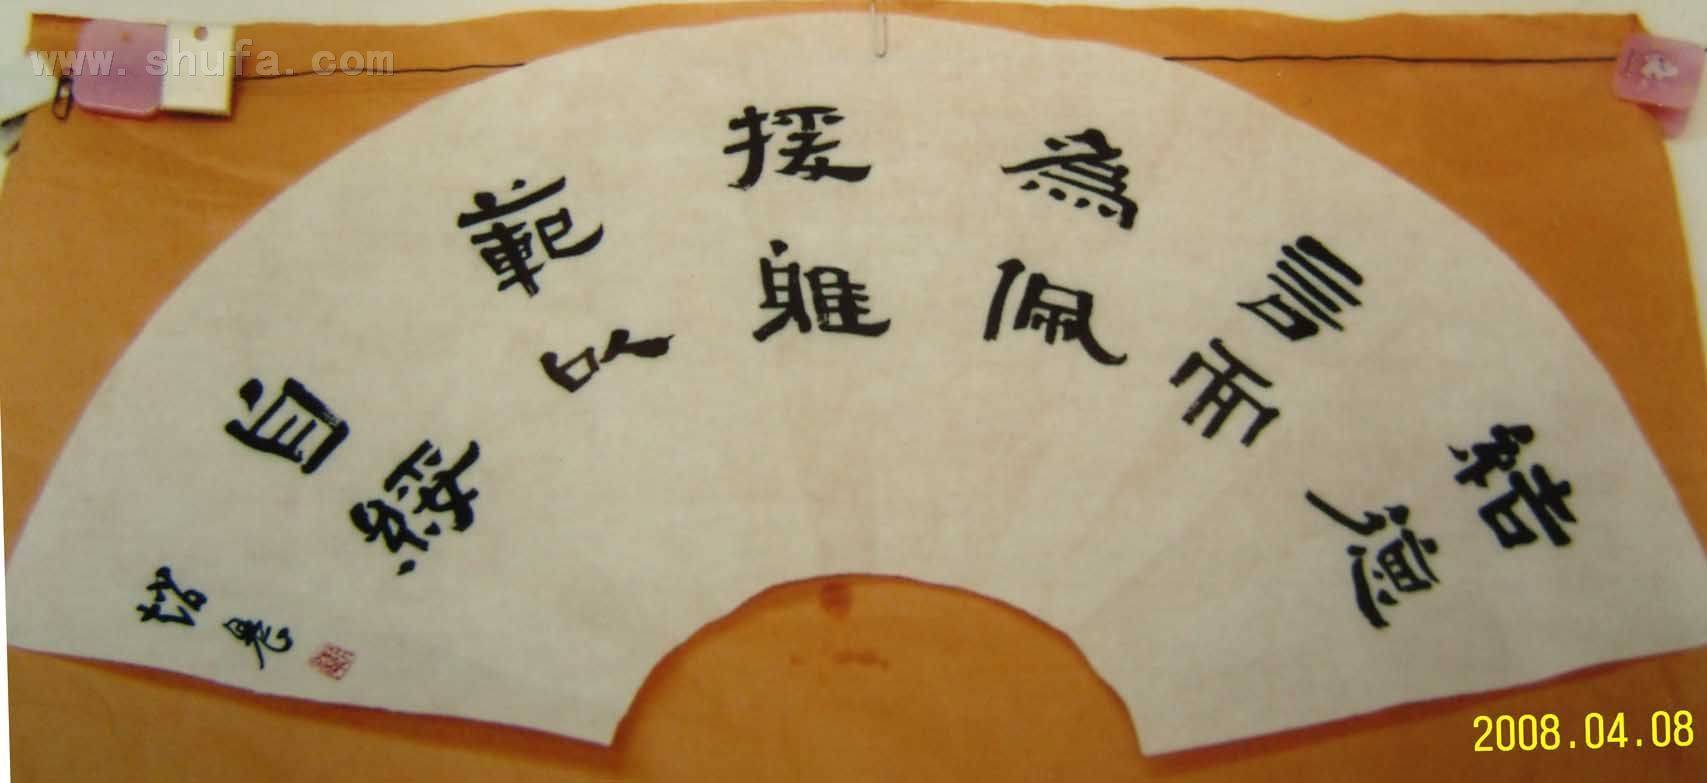 www.shufa.com
結德
言而
為佩
援雅
範以
自綏
2008.04.08